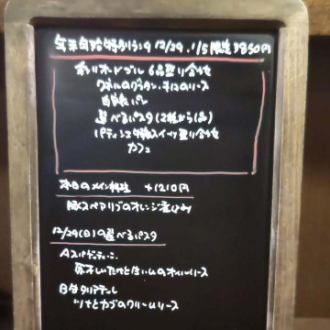 年末年始特別ランチ 12/29 . 1/5 限定 3850円
オードブル 6品盛り合せ
のグラタン
自家製パン
選べるパスタ (2種から1品)
パティシエ特製スイーツ盛り合せ
カフェ
本日のメイン料理 +1210円
豚スペアリブのオレンジ煮込み
12/29(日)の選べるパスタ
Aスパゲティーニ
のオイルソース
Bタリアテッレ
ツナとカブのクリームソース